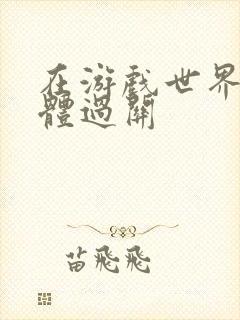 在游戲世界
體過關
苗飛飛